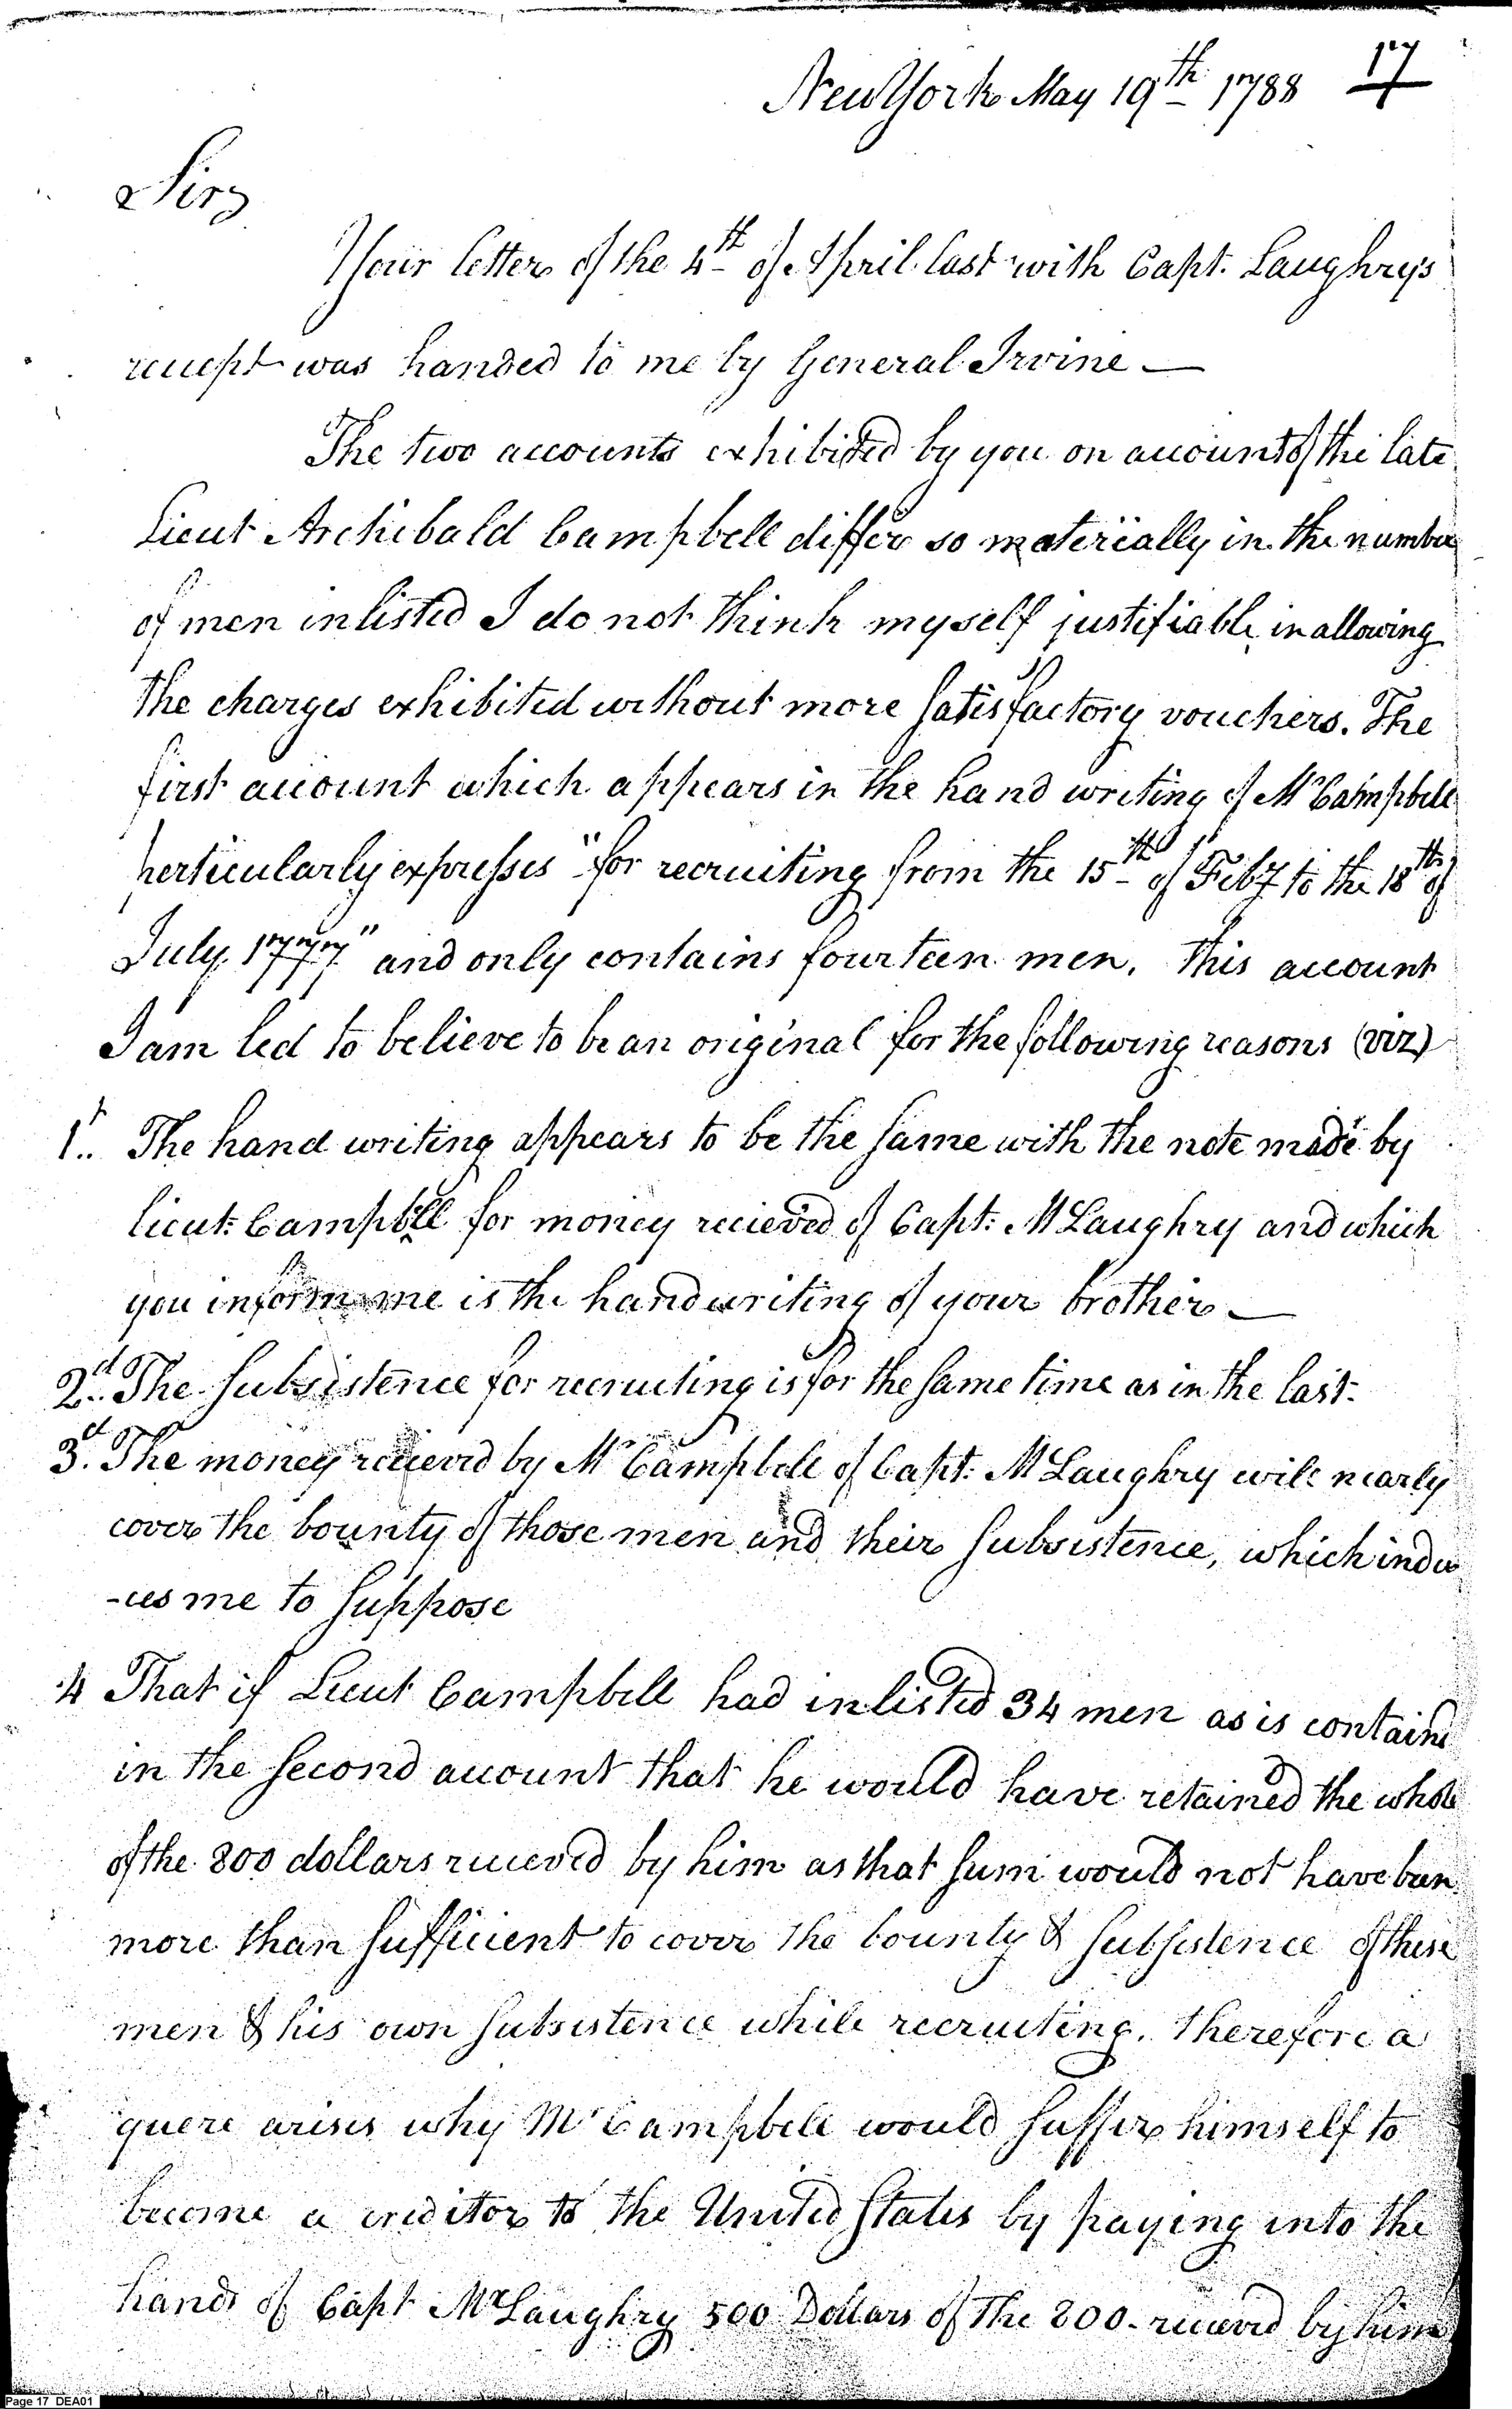 New York May 19th 1788 17
Sir,
Your letter of the 4th of April last with Capt. Laughry's
reciept was handed to me by General Irvine —
The two accounts exhibited by you on account of the late
Lieut Archibald Campbell differ so materially in the number
of men inlisted I do not think myself justifiable in allowing
the charges exhibited without more satisfactory vouchers. The
first account which appears in the hand writing of Mr Campbell
perticularly expresses "for recruiting from the 15th of Feby to the 18th of
July 1777" and only contains fourteen men. This account
I am led to believe to be an original for the following reasons (viz)
1st. The hand writing appears to be the same with the note made by
lieut: Campbell for money recieved of Capt: McLaughry and which
you inform me is the handwriting of your brother —
2d. The subsistence for recruiting is for the same time as in the last.
3d. The money recieved by Mr Campbell of Capt: McLaughry will nearly
cover the bounty of those men and their subsistence, which indu
-ces me to suppose
4 That if Lieut Campbell had inlisted 34 men as is containd
in the second account that he would have retained the whole
of the 800 dollars recieved by him as that sum would not have been
more than sufficient to cover the bounty & subsistence of these
men & his own subsistence while recruiting. Therefore a
quere arises why Mr Campbell would suffer himself to
become a creditor to the United States by paying into the
hands of Capt McLaughry 500 Dollars of the 800 - recieved by him
Page 17 DEA01